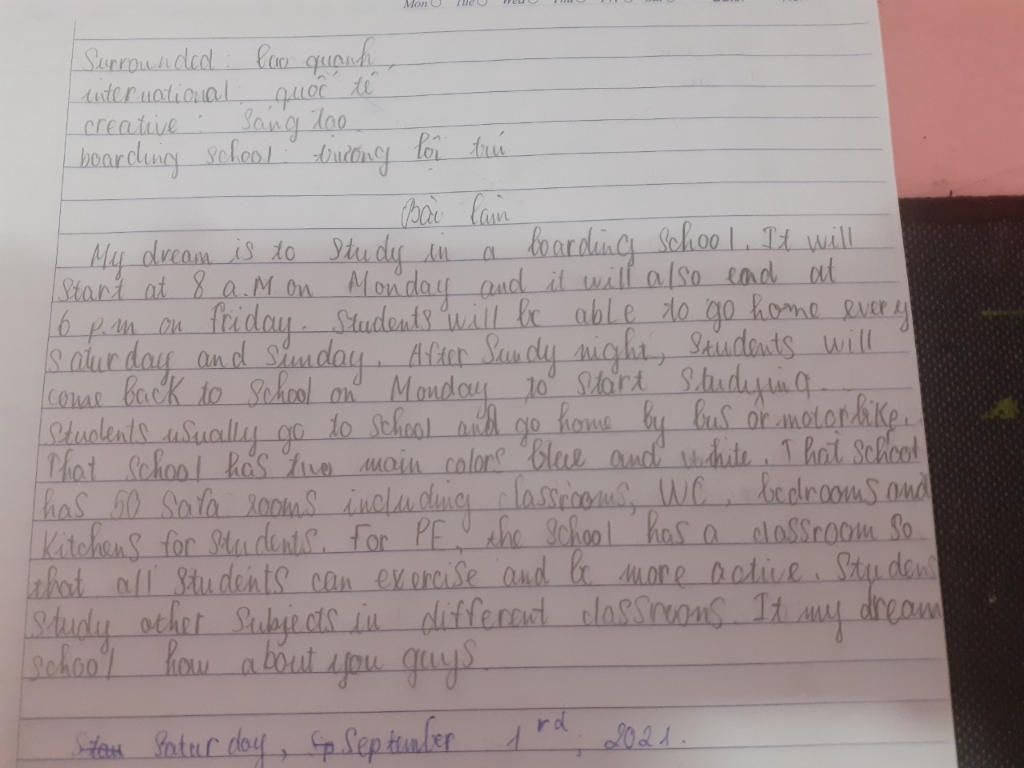 Mon Tue Wed Thu Fri Sat
Surrounded : bao quanh
international : quốc tế
creative : sáng tạo
boarding school : trường lội trú
Bài làm
My dream is to study in a boarding school. It will
start at 8 a.M on Monday and it will also end at
6 p.m on friday. Students will be able to go home every
saturday and sunday. After Sundy night, students will
come back to school on Monday to start studying.
Students usually go to school and go home by bus or motorbike.
That school has two main colors blue and white. That school
has 50 safa rooms including classrooms, WC, bedrooms and
kitchens for students. For PE, the school has a classroom so
that all students can exercise and be more active. Student
study other subjects in different classrooms. It my dream
school how about you guys
Saturday, September 1rd, 2021.